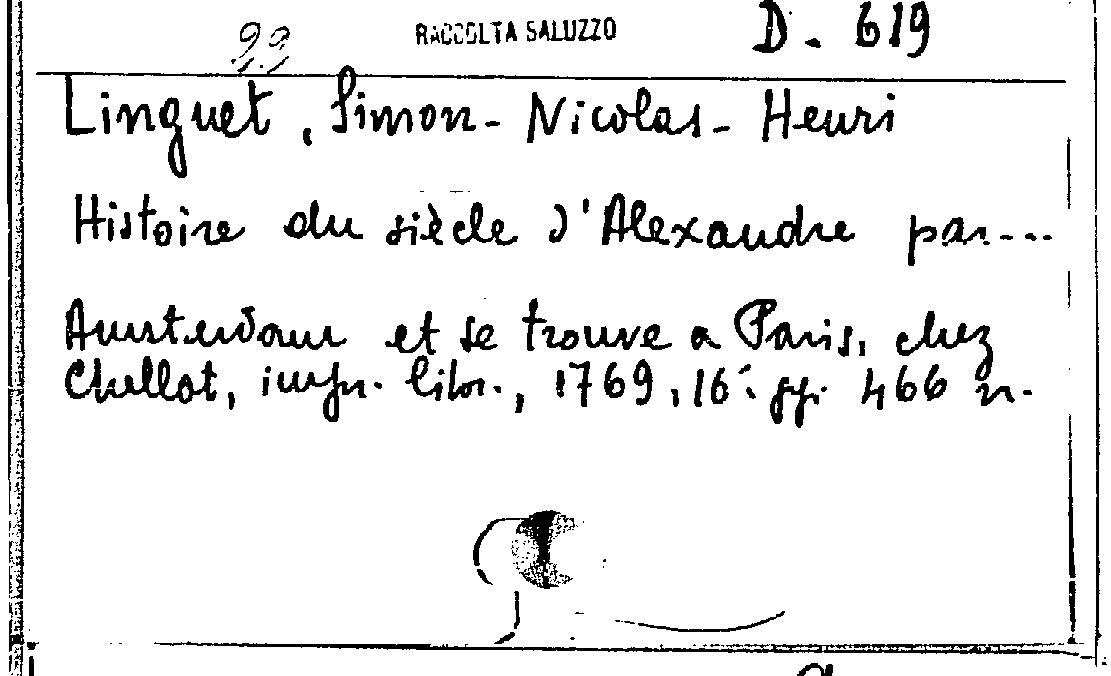 99 RACCOLTA SALUZZO D. 619
Linguet, Simon-Nicolas-Henri
Histoire du siècle d'Alexandre par....
Amsterdam et se trouve a Paris, chez
Chellot, impr. libr., 1769, 16° pp. 466 n.